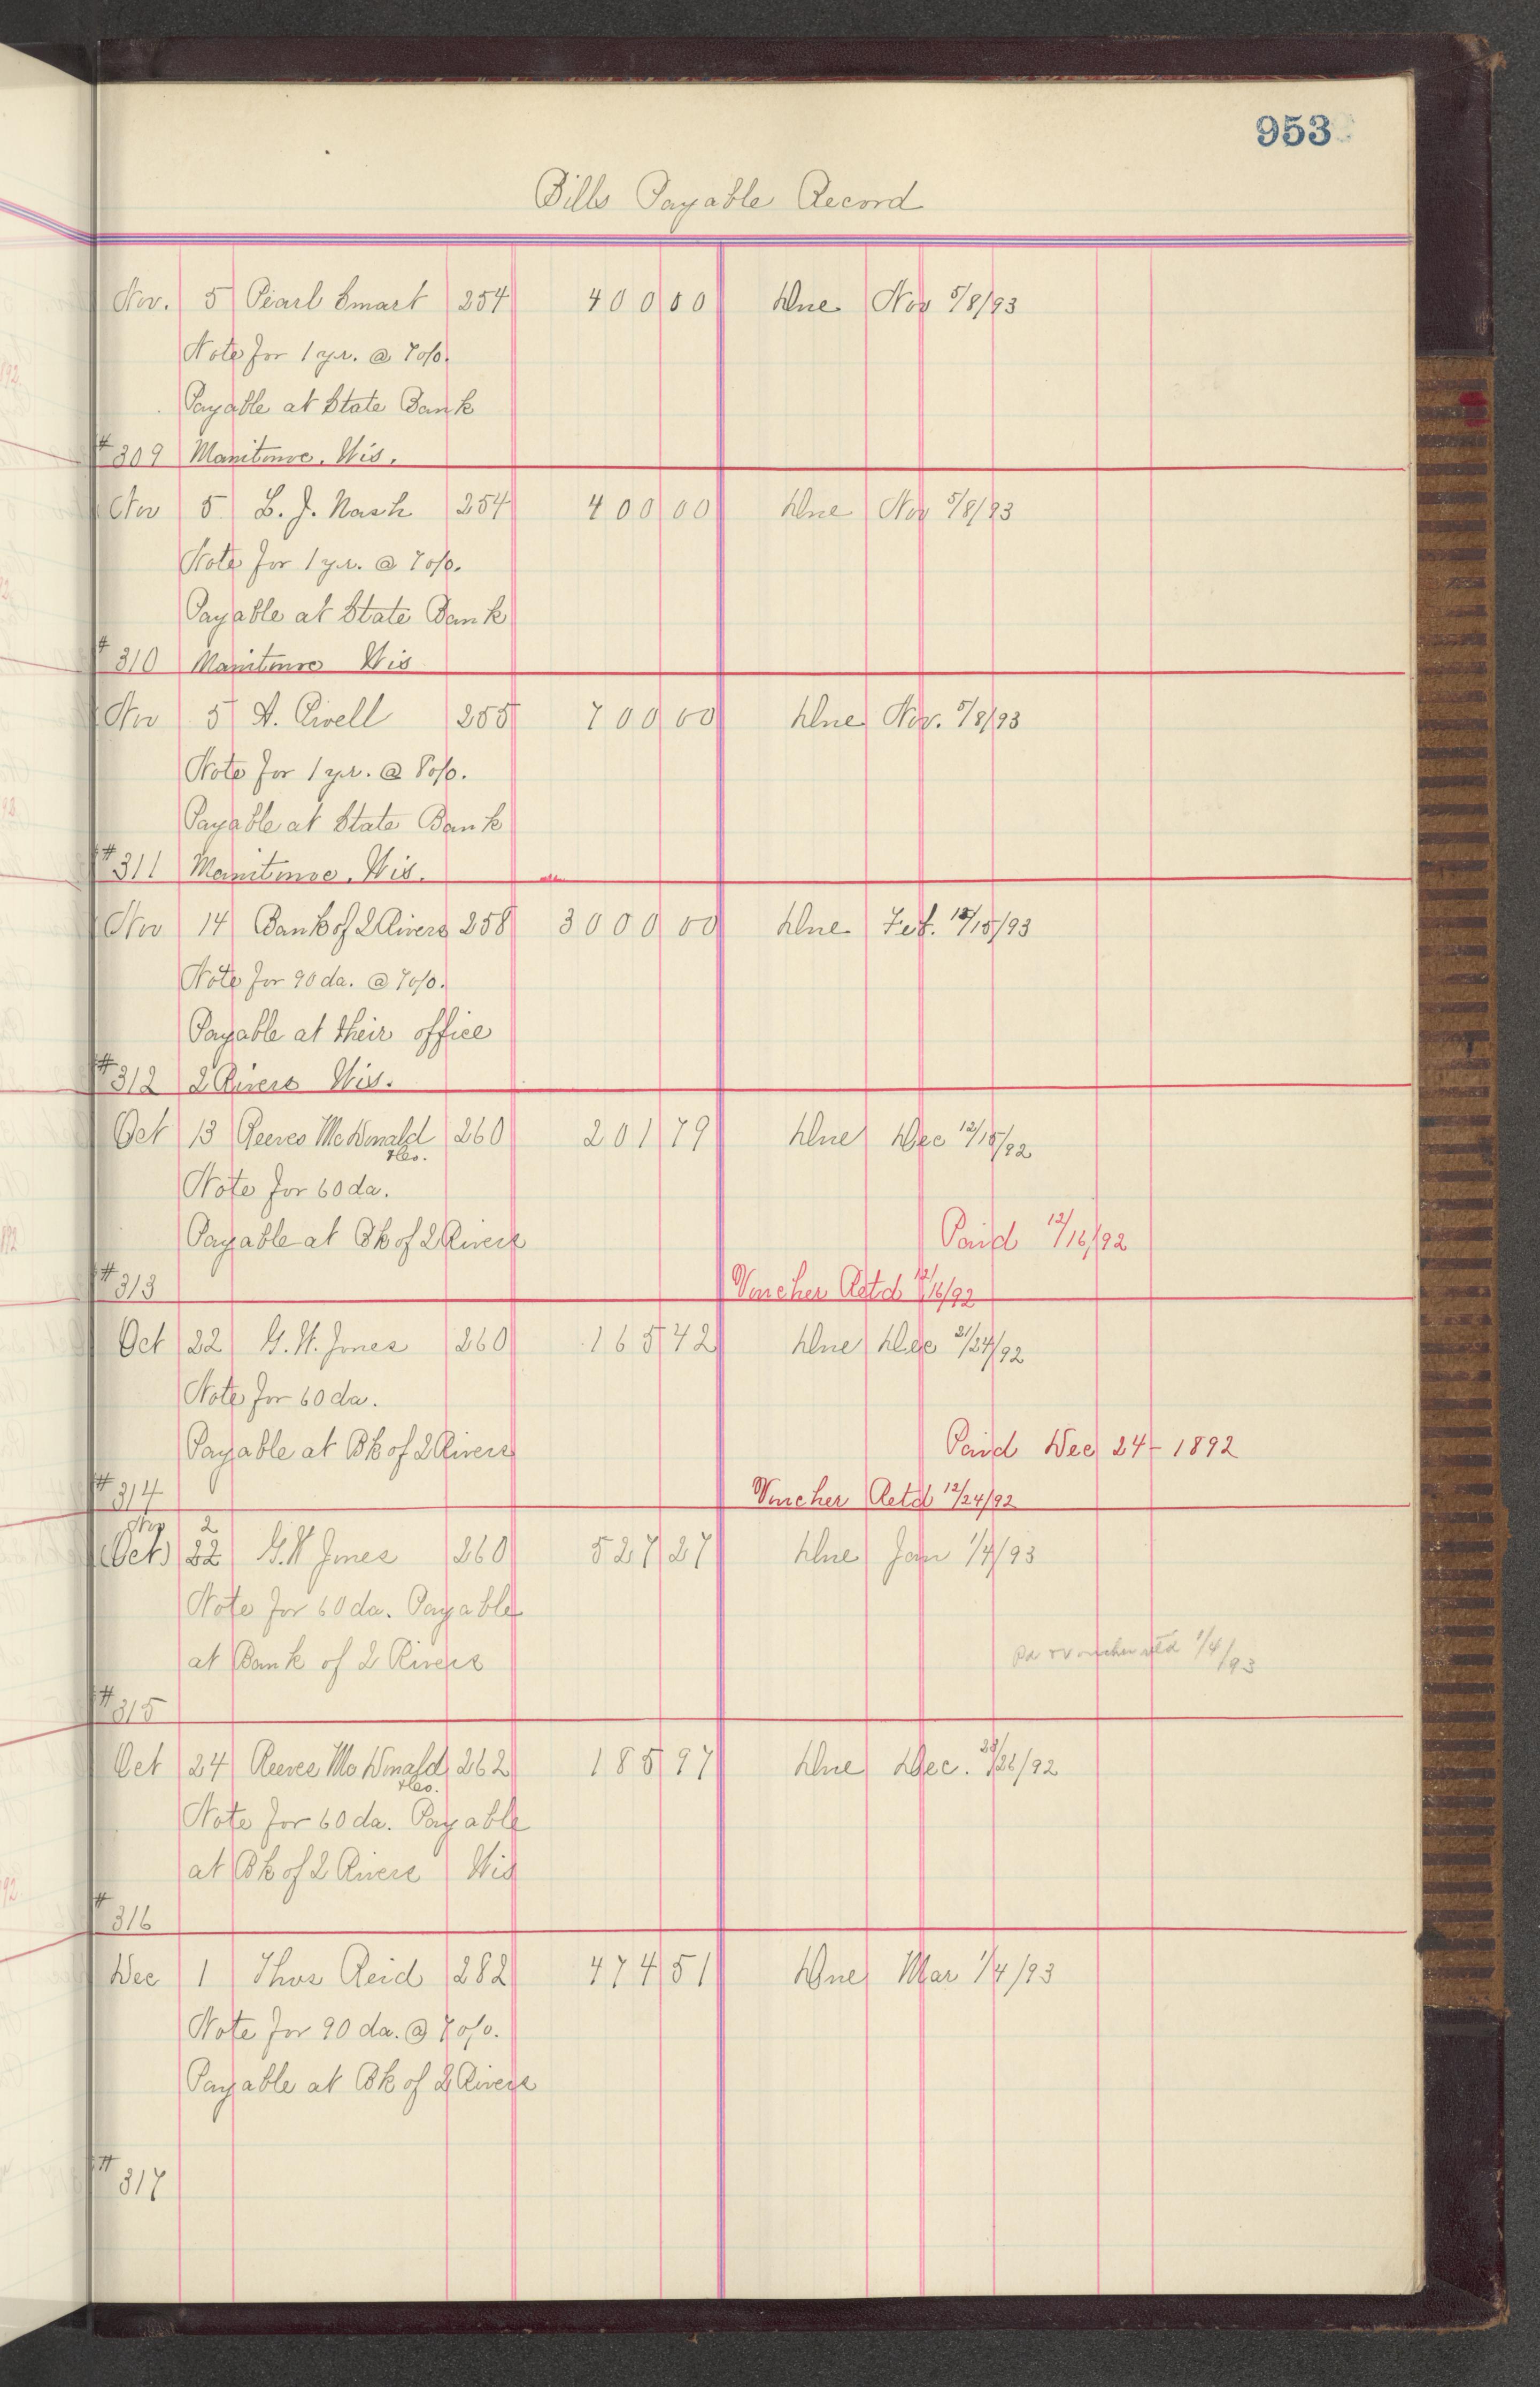 953
Bills Payable Record
Nov. 5 Pearl Smart 254 400 00 Due Nov 5/8/93
Note for 1 yr. @ 7 o/o.
Payable at State Bank
#309 Manitowoc. Wis.
Nov 5 L. J. Nash 254 400 00 Due Nov 5/8/93
Note for 1 yr. @ 7 o/o.
Payable at State Bank
#310 Manitowoc Wis
Nov 5 255 700 00 Due Nov. 5/8/93
Note for 1 yr. @ 8 o/o.
Payable at State Bank
#311 Manitowoc. Wis.
Nov 14 Bank of 2 Rivers 258 3000 00 Due Feb. 12/15/93
Note for 90 da. @ 7 o/o.
Payable at their office
#312 2 Rivers Wis.
Oct 13 Reeves McDonald &Co. 260 201 79 Due Dec 12/15/92
Note for 60 da.
Payable at Bk of 2 Rivers Paid 12/16/92
#313 Voucher Retd 12/16/92
Oct 22 G. W. Jones 260 165 42 Due Dec 21/24/92
Note for 60 da.
Payable at Bk of 2 Rivers Paid Dec 24 - 1892
#314 Voucher Retd 12/24/92
Nov 2
(Oct) 22 G. W Jones 260 527 27 Due Jan 1/4/93
Note for 60 da. Payable
at Bank of 2 Rivers Pd & voucher retd 1/4/93
#315
Oct 24 Reeves McDonald &Co. 262 185 97 Due Dec. 23/26/92
Note for 60 da. Payable
at Bk of 2 Rivers Wis
#316
Dec 1 Thos Reid 282 474 51 Due Mar 1/4/93
Note for 90 da. @ 7 o/o.
Payable at Bk of 2 Rivers
#317